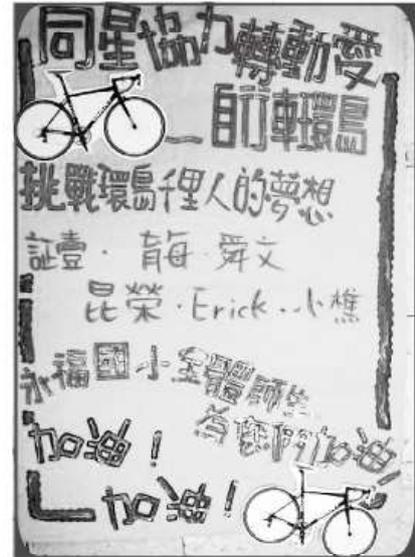 同星協力轉動愛
自行車環島
挑戰環島千里人的夢想
証壹．育每．舜文
昆榮．Erick．小樵
永福國小全體師生
為你們加油
加油！
加油！